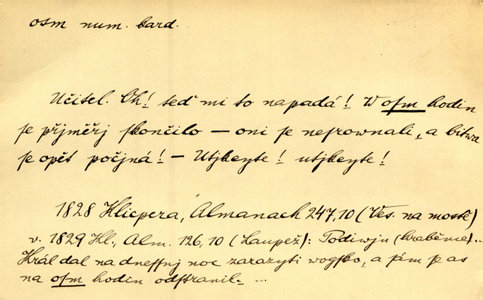 osm num. card.
Učitel. Ch! teď mi to napadá! W osm hodin
se přjměřj skončilo — oni se nesrownali, a bitwa
se opět počjná! — Utjkeyte! utjkeyte!
1828 Klicpera, Almanach 247, 10 (Čes. na mostě)
v. 1829 Kl., Alm. 126, 10 (Laupež): Podiwjn (hraběnce)...
Král dal na dnessnj noc zarazyti wogsko, a s njm p as
na osm hodin odstranil. ...